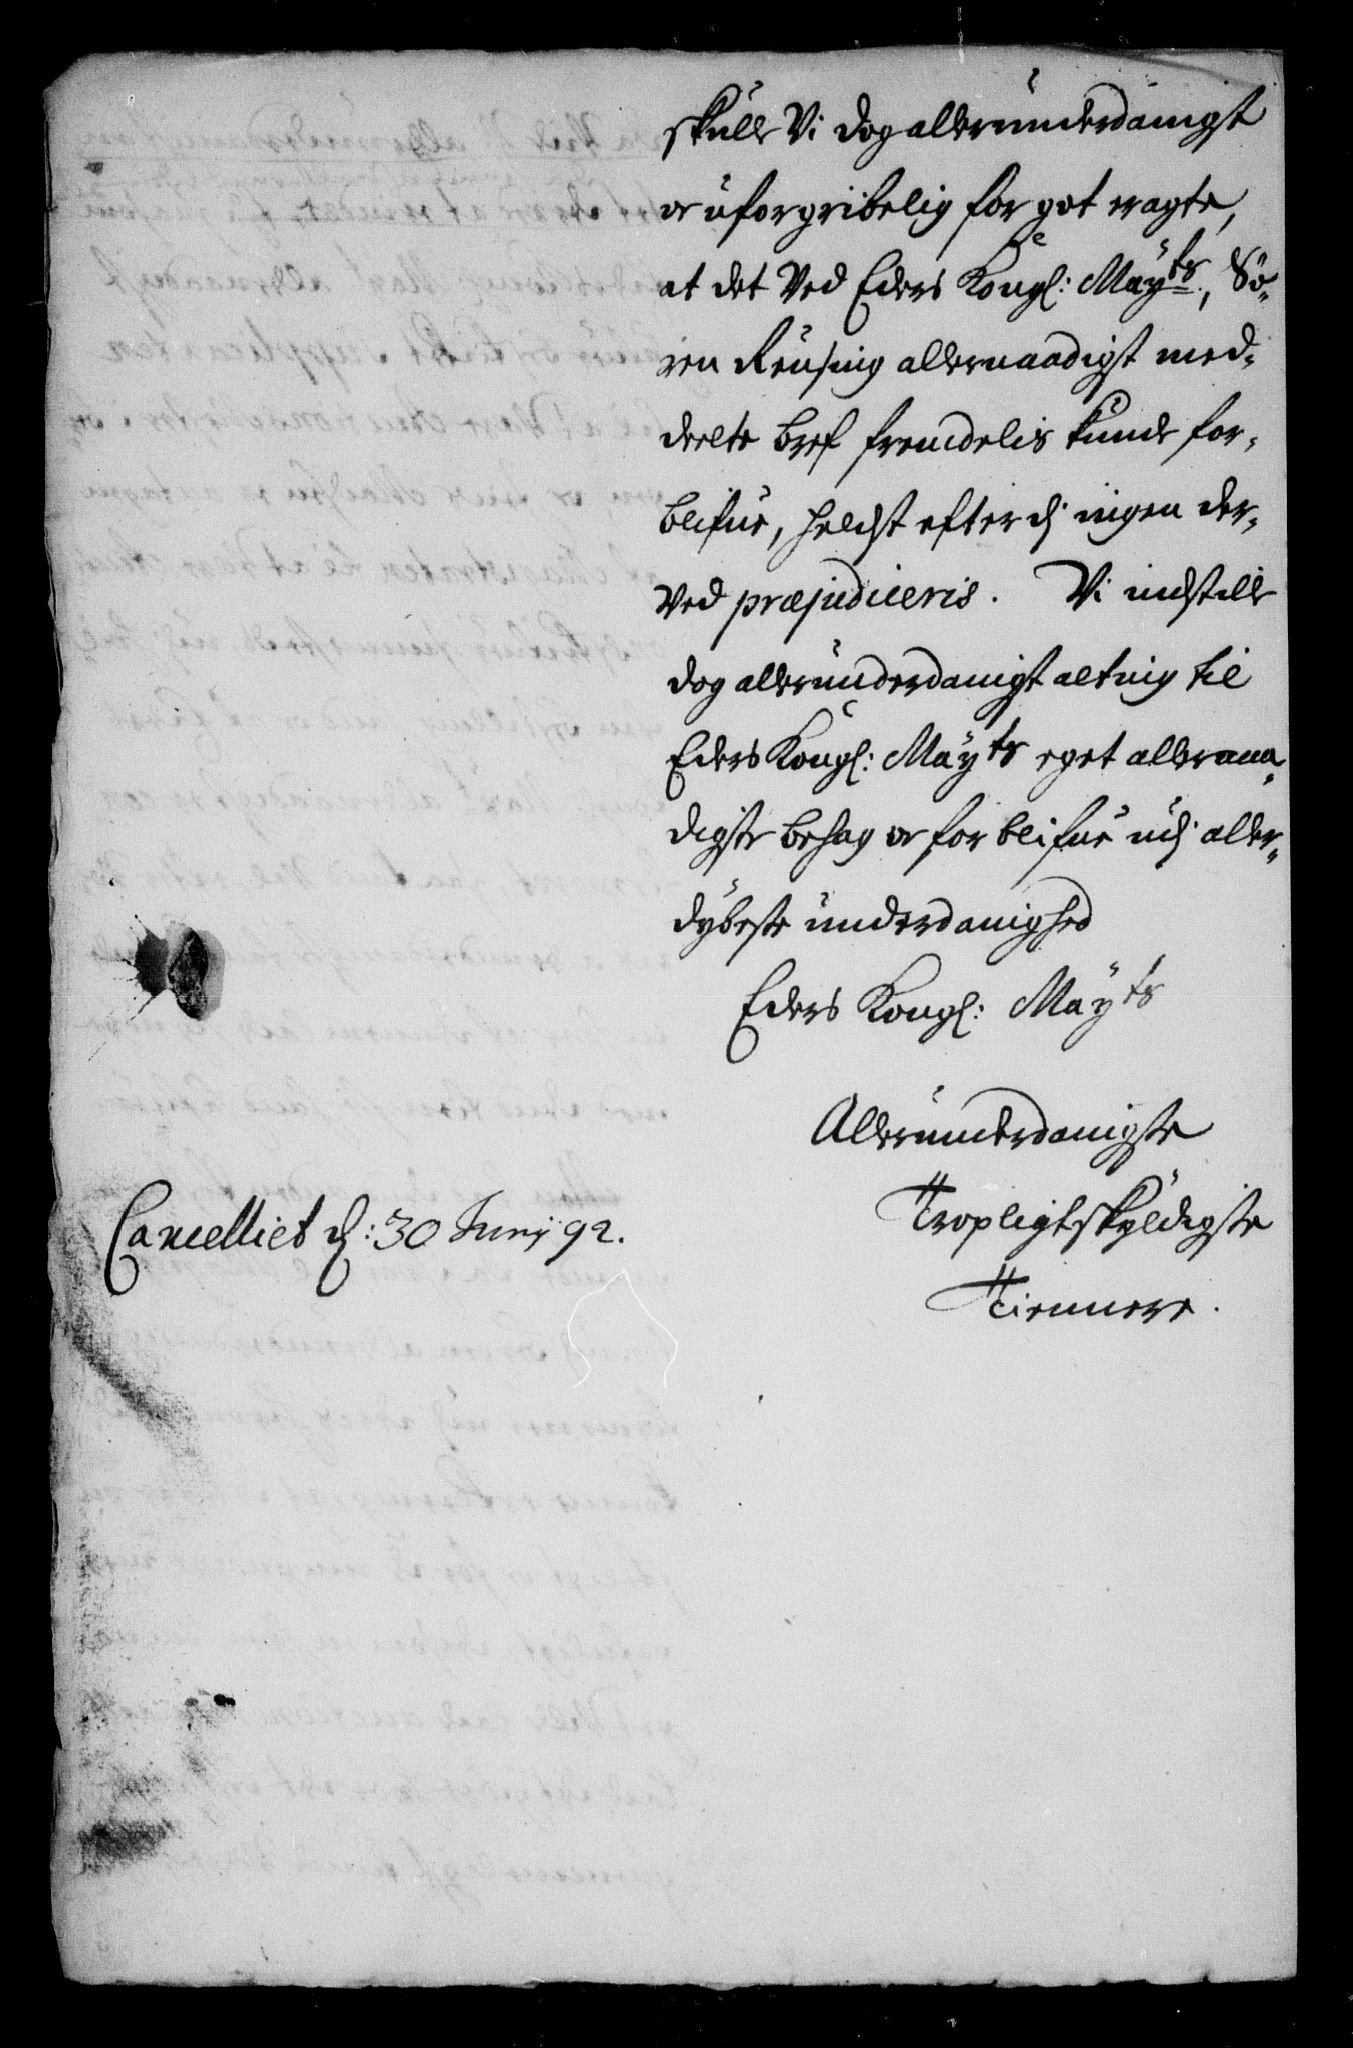 skulle Vi dog allerunderdanigst
oc uforgribelig for got eragte,
at det Ved Eders Kongl: Mayts, Sö-
ren Reusing allernaadigst med-
deelte bref fremdelis kunde for-
blifue, helst efterdj ingen der-
Ved præjudiceris. Vi indstille
dog allerunderdanigst alting til
Eders Kongl: Mayts eget allernaa-
digste behag oc forblifue udj aller-
dybeste underdanighed
Eders Kongl: Mayts
Allerunderdanigste
Tropligtskyldigste
Tiennere.
Cancelliet d: 30 Junj 92.